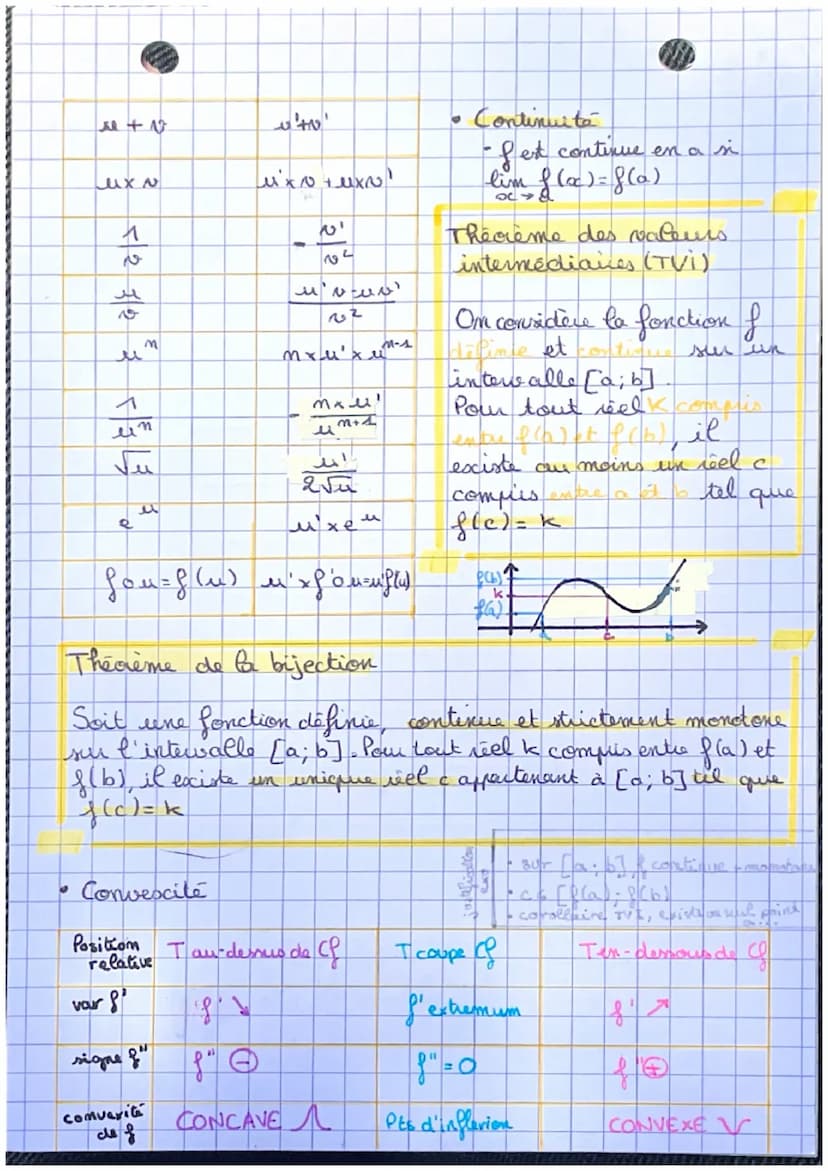 u + v    u'+v'
u x v    u'x v + u x v'
1/v    - v'/v²
u/v    u'v-uv'/v²
uⁿ    n x u' x uⁿ⁻¹
1/uⁿ    - n x u'/uⁿ⁺¹
√u    u'/2√u
eᵘ    u' x eᵘ
fou = f(u)    u' x f'ou = u'f(u)
• Continuité
- f est continue en a si
lim f(x) = f(a)
x → a
Théorème des valeurs
intermédiaires (TVi)
On considère la fonction f
définie et continue sur un
intervalle [a; b].
Pour tout réel k compris
entre f(a) et f(b), il
existe au moins un réel c
compris entre a et b tel que
f(c) = k
f(b)
k
f(a)
a c b
Théorème de la bijection
Soit une fonction définie, continue et strictement monotone
sur l'intervalle [a; b]. Pour tout réel k compris entre f(a) et
f(b), il existe un unique réel c appartenant à [a; b] tel que
f(c) = k
• sur [a; b], f continue + monotone
• c ∈ [f(a); f(b)
• corollaire TVI, existe un seul point
• Convexité
Position relative    T au-dessus de Cf    T coupe Cf    T en-dessous de Cf
var f'    f' ↘    f' extremum    f' ↗
signe f"    f" ⊖    f" = 0    f" ⊕
convexité de f    CONCAVE    Pts d'inflexion    CONVEXE